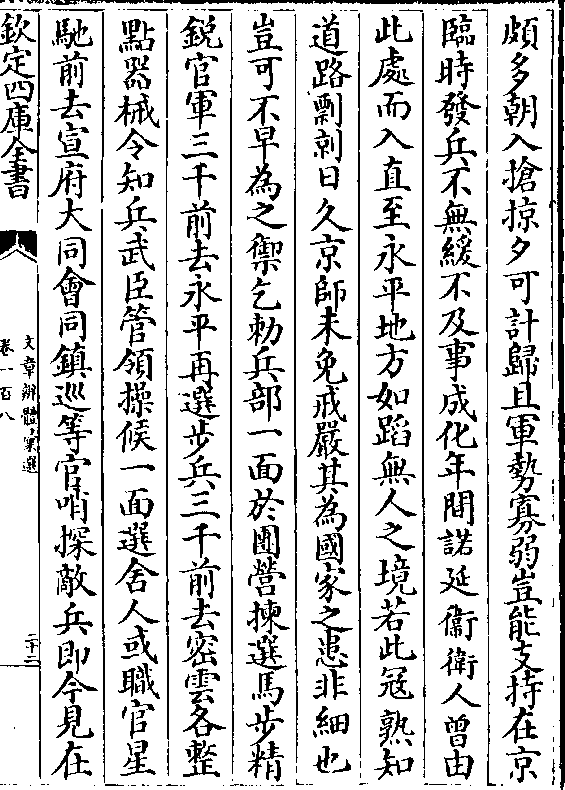 頗多朝入搶掠夕可計歸且軍勢寡弱豈能支持在京
臨時發兵不無緩不及事成化年間諾延衞衛人曾由
此處而入直至永平地方如蹈無人之境若此冦熟知
道路剽剠日久京師未免戒嚴其為國家之患非細也
豈可不早為之禦乞勅兵部一面於團營揀選馬步精
鋭官軍三千前去永平再選步兵三千前去密雲各整
點器械令知兵武臣管領操候一面選舍人或職官星
馳前去宣府大同會同鎮巡等官哨探敵兵即今見在
欽定四庫全書
文章辨體彚選
卷一百八
二十二